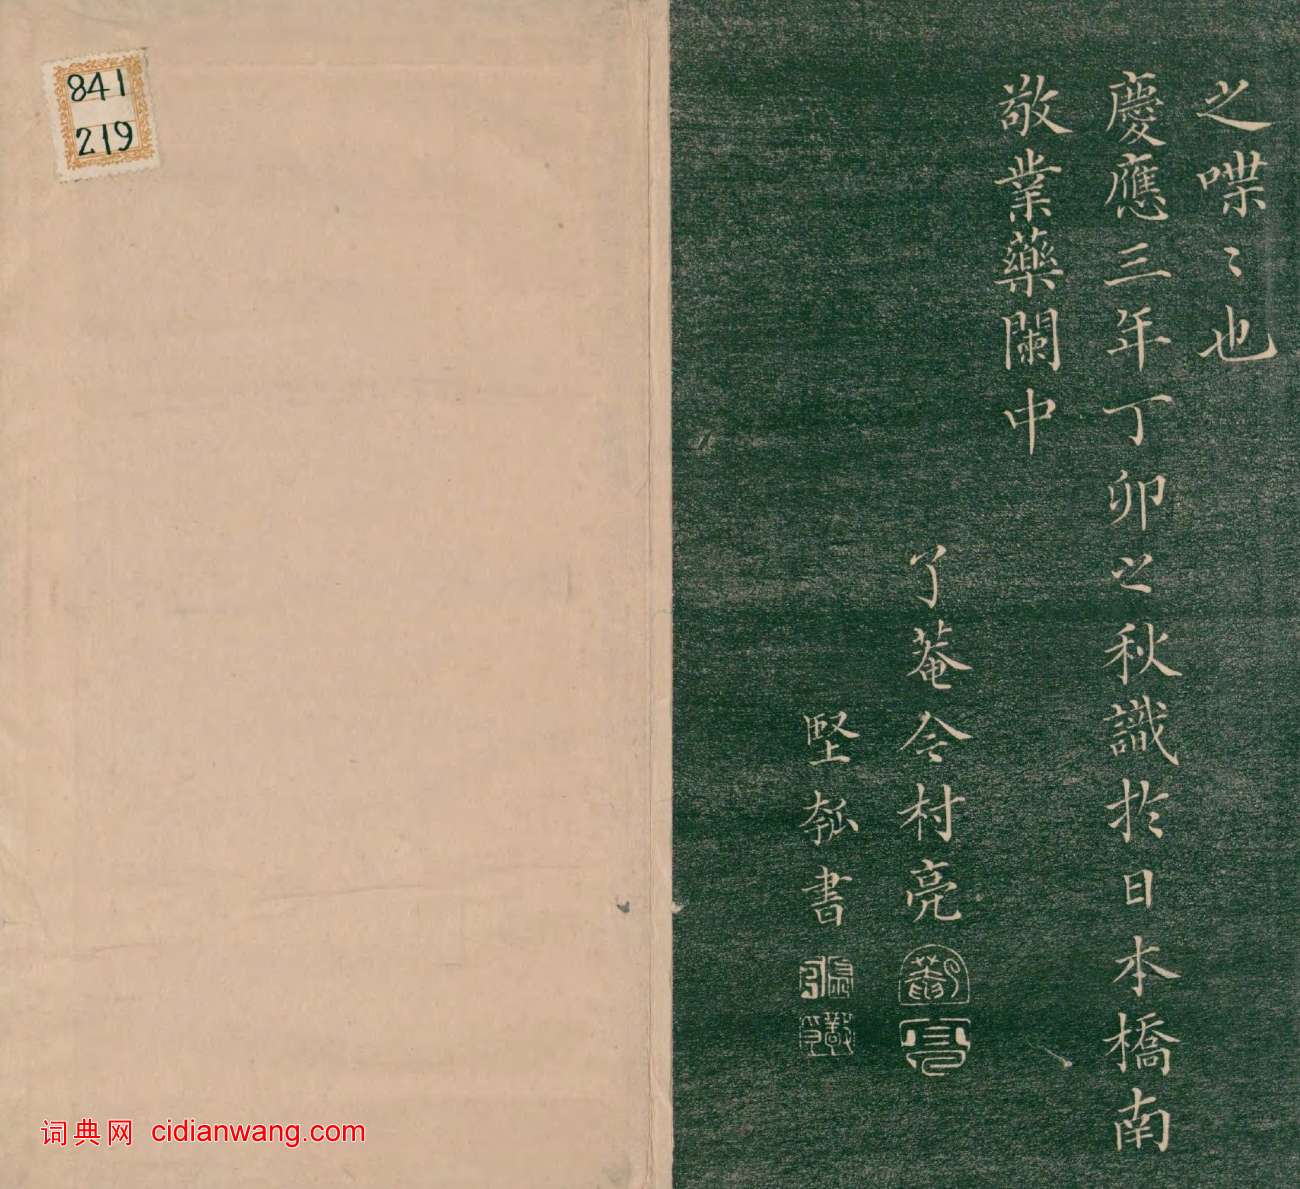 之喋〻也
慶應三年丁卯之秋識於日本橋南
敬業藥闌中
了菴今村亮
堅瓠書
841
219
词典网 cidianwang.com